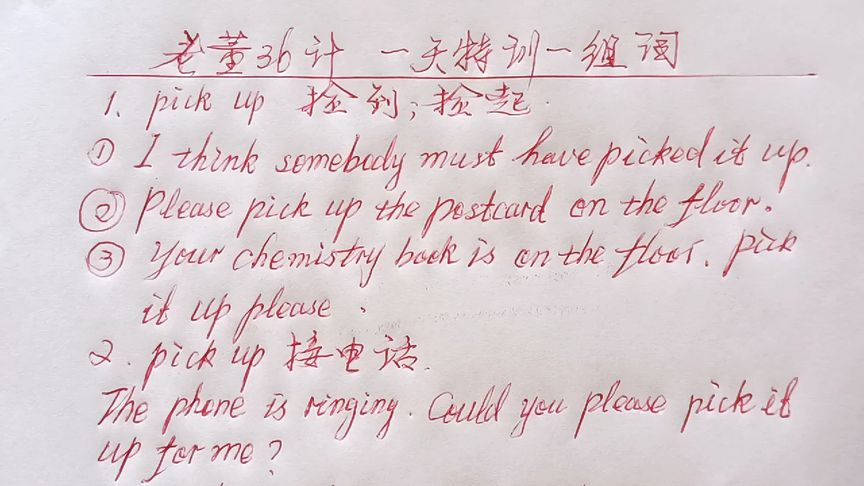 老董36计 一天特训一组词
1、pick up 捡到；捡起.
① I think somebody must have picked it up.
② Please pick up the postcard on the floor.
③ Your chemistry book is on the floor. Pick
it up please.
2. pick up 接电话.
The phone is ringing. Could you please pick it
up for me?